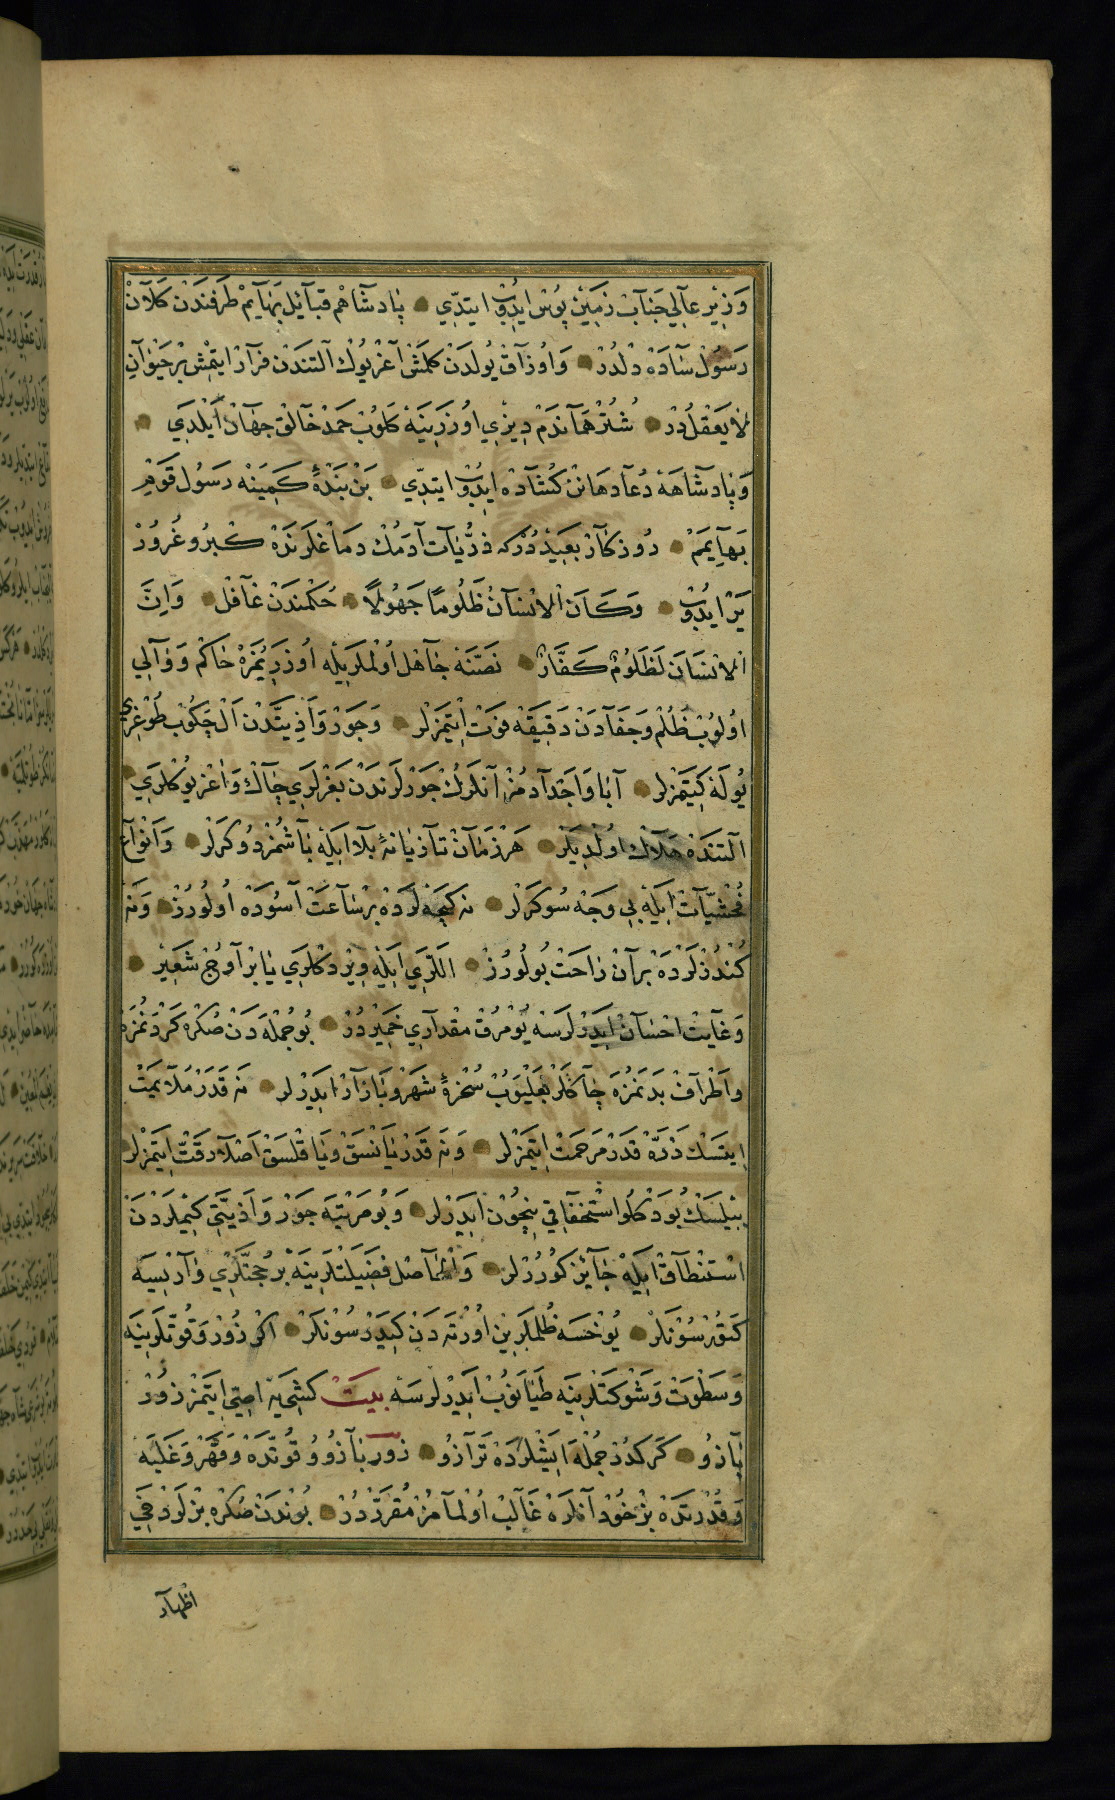 وَزِيْرِ عٓالِي جَنٓابْ زَمِيْنْ پُوسْ اِيدُبْ اِيتدِّي پٓادشٓاهُمْ قبٓائلِ بَهٓايِمْ طَرَفندَنْ كَلٓانْ
رَسُولْ سٓادَهْ دِلْدُرْ وَاُوزٓاقْ يُولدَنْ كَلمَشْ اٰغِرْ يُوكْ اَلتندَنْ فرٓارْ ايتْمِشْ بِرْ حَيْوٰانِ
لٰا يَعْقِلْدُرْ شُتُرْ هَمٓانْدَمْ دِيزِي اُوزَرِينَهْ كَلوُبْ حَمدِ خٓالِقِ جِهٓانْ اَيْلَدِي
وَپٓادشٓاهَهْ دُعٓادَهَانِنْ كُشٓادَهْ اِيدُبْ ايتدِّي بَنْ بَنْدَهٔ كَمِينَهْ رَسُولِ قَوْمِ
بَهٓايِمَمْ رُوزكٓارْ بَعِيدْدُرْكِه ذُرِّيٓاتِ آدَمُكْ دِمَاغلَرَنْدَهْ كِبْرُو غُرُورْ
يَرْ ايدُبْ وَكَانَ الْاِنْسٓانُ ظَلُومًا جَهُولًا حُكْمِندَنْ غٓافِلْ وَاِنَّ
الْاِنْسَانَ لَظَلُومٌ كَفَّارٌ نَصَّنَهْ جٓاهِلْ اُولْمَلَرِيْلَه اُوزَرِيمُزَهْ حٓاكِمْ وَ وٓالِي
اُولوُبْ ظُلْم وَجَفٓادَنْ دَقِيقَهْ فَوتْ اِيتَمَزْلَر وَجَورْ وَاَذِيَّتدَنْ اَلْ چَكُوبْ طُوغرِي
يُولَهْ كِيتَمزْلر آبٰا وَاَجْدٓادِمُزْ آنلَرُكْ جَورْلَرنْدَنْ بَغِرلَرِي چٓاكْ وَاٰغِرْ يُوكْلرِي
اَلتنْدَهْ هَلٓاكْ اوُلْدِيلَرْ هَرْ زَمٓانْ تٓازيٰانَهٔ بَلٓا اَيْلَهْ بٓاشُمزْ دُوكَرلَرْ وَاَنْوٓاعِ
فُحْشيّٓاتْ اَيْلَهْ بِي وَجَهْ سُوكَرَلَرْ نَه كِيجَهْلَرْدَهْ بِرْ سٓاعَتْ آسُودَهْ اُولُورُزْ وَنَهْ
كُنْدُزْلَرْدَهْ بِرْ آنْ رٰاحَتْ بُولُورُزْ اَللَّرِي اَيْلَهْ وِيْرِدكْلَرِي يٰا بِرْ آوُجْ شَعِيْر
وَغٓايتْ اِحْسٓانْ اِيدَرْلَرسَه يُومْرُقْ مِقْدٓارِي خَمِيرْدُرْ بُوجُملَهْ دَنْ صُكْرَه كَرْدَنمُزَه
وَاَطْرٓافِ بَدَنمُزَهْ چٓاكْلَرْ بَغَلْيُوبْ سُخْرَهٔ شَهَرْ وَبٓازٓارْ اِيدَرْلَر نَه قَدَرْ مُلٓايِمَتْ
اِيتسَكْ ذَرَّهْ قَدَرْ مَرحَمَتْ اِيتَمَزلَر وَنَه قَدَرْ يٰا نْسَقْ وَيٰا قِلْسَقْ اَصْلٓا رِقَّتْ اِيتَمزْلَر
بِيْلسَكْ بُودْكلُو اسْتخفٓافِي نِيجُونْ اِيدَرْلر وَبُومَرْتبَه جَوْر وَاَذِيَّتِي كِيْملَردَنْ
استنْطٓاقْ اَيْلَهْ جٓائِزْ كُورُرلَر وَالْحٓاصِلْ فَضِيلَتلَرِينَهْ بُرْ حُجّتلَرِي وٰارْايِسَه
كَتُورسُونلَرْ يُوخسَه ظُلملَرِينِ اُورْتَه دَنْ كِيدَرسُونلَرْ اكَرْ زُورْ وَقُوّتلَرِينَه
وَسَطوَتْ وَشَوكَتلَرِينَه طَيَانُوبْ اِيدَرْلرسَه بيت كشِي يَه اصِيّ اِيتمَزْ زُورْ
بٓازُو كَركْدُرْ جُملَه اِيشْلَرْدَهْ تَرٓازُو زُورِ بٓازُو وُ قُوَّتدَهْ وَقَهْرْ وَغَلَبَه
وَقُدْرَتدَهْ بِزْ خُودْ آنلَرَهْ غٓالِبْ اُولْمٓامُزْ مُقَرَّردُرْ بُونْدَنْ صُكْرَه بِزلَرْ دَخِي
اظهٓار